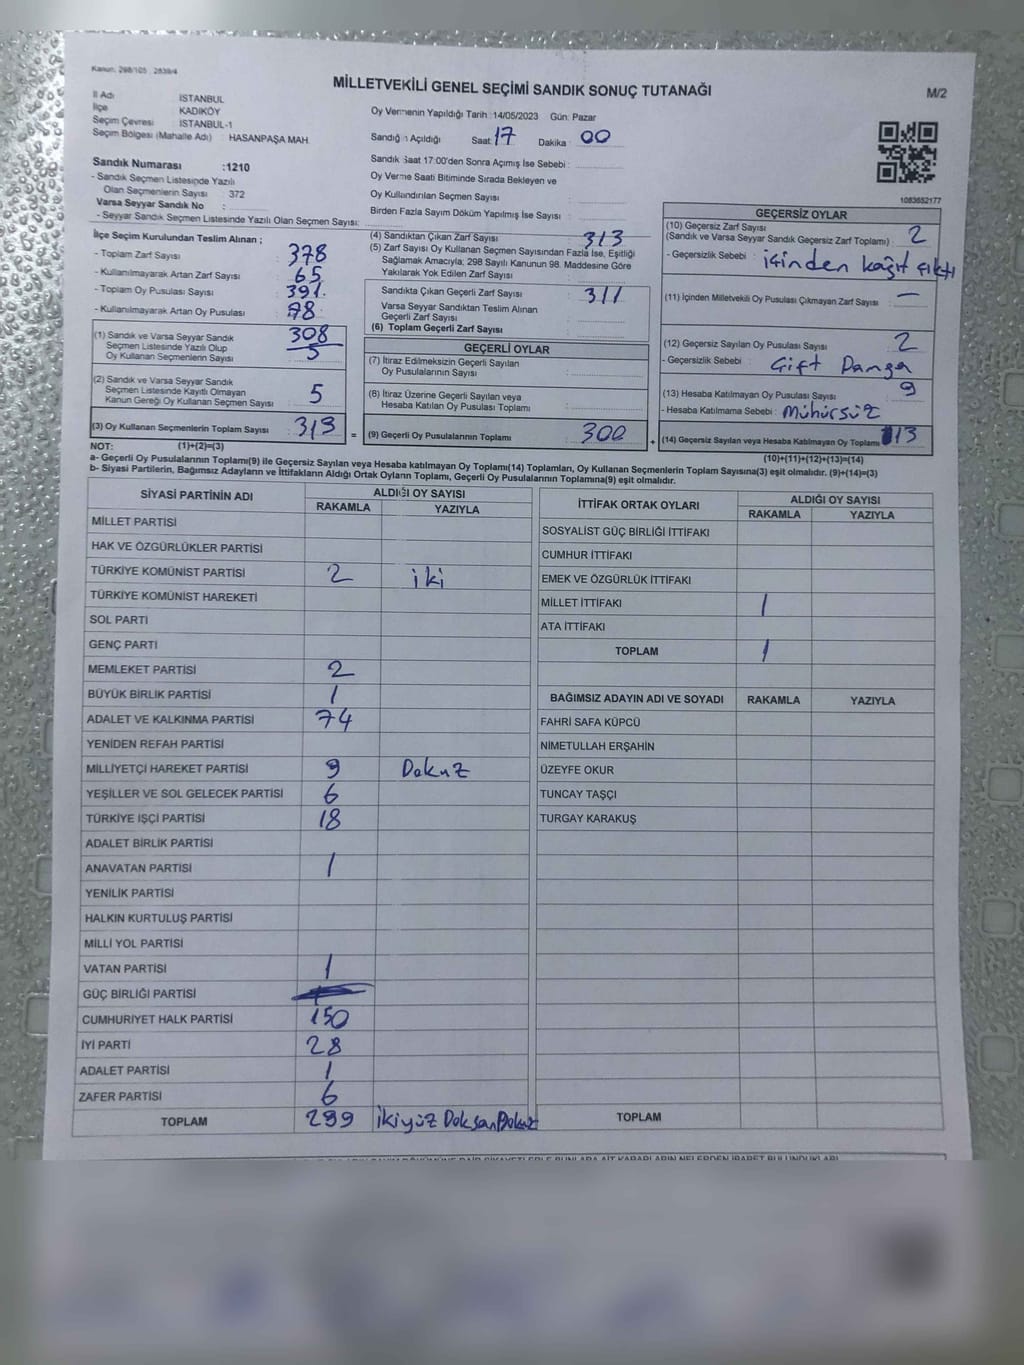 Kanun: 298/105 , 2839/4
MİLLETVEKİLİ GENEL SEÇİMİ SANDIK SONUÇ TUTANAĞI
M/2
İl Adı İSTANBUL
İlçe KADIKÖY
Seçim Çevresi : İSTANBUL-1
Seçim Bölgesi (Mahalle Adı) HASANPAŞA MAH.
Oy Vermenin Yapıldığı Tarih : 14/05/2023 Gün: Pazar
Sandığın Açıldığı Saat 17 Dakika : 00
Sandık Saat 17:00'den Sonra Açımış İse Sebebi :
Oy Verme Saati Bitiminde Sırada Bekleyen ve
Oy Kullandırılan Seçmen Sayısı
Birden Fazla Sayım Döküm Yapılmış İse Sayısı :
Sandık Numarası :1210
- Sandık Seçmen Listesinde Yazılı
Olan Seçmenlerin Sayısı 372
Varsa Seyyar Sandık No :
- Seyyar Sandık Seçmen Listesinde Yazılı Olan Seçmen Sayısı:
1083652177
İlçe Seçim Kurulundan Teslim Alınan ;
- Toplam Zarf Sayısı : 378
- Kullanılmayarak Artan Zarf Sayısı : 65
- Toplam Oy Pusulası Sayısı : 391.
- Kullanılmayarak Artan Oy Pusulası : 78
(1) Sandık ve Varsa Seyyar Sandık
Seçmen Listesinde Yazılı Olup
Oy Kullanan Seçmenlerin Sayısı : 308
5
(2) Sandık ve Varsa Seyyar Sandık
Seçmen Listesinde Kayıtlı Olmayan
Kanun Gereği Oy Kullanan Seçmen Sayısı : 5
(3) Oy Kullanan Seçmenlerin Toplam Sayısı : 313
(4) Sandıktan Çıkan Zarf Sayısı : 313
(5) Zarf Sayısı Oy Kullanan Seçmen Sayısından Fazla İse, Eşitliği
Sağlamak Amacıyla; 298 Sayılı Kanunun 98. Maddesine Göre
Yakılarak Yok Edilen Zarf Sayısı
Sandıkta Çıkan Geçerli Zarf Sayısı : 311
Varsa Seyyar Sandıktan Teslim Alınan
Geçerli Zarf Sayısı
(6) Toplam Geçerli Zarf Sayısı :
GEÇERLİ OYLAR
(7) İtiraz Edilmeksizin Geçerli Sayılan
Oy Pusulalarının Sayısı
(8) İtiraz Üzerine Geçerli Sayılan veya
Hesaba Katılan Oy Pusulası Toplamı :
= (9) Geçerli Oy Pusulalarının Toplamı : 300 +
GEÇERSİZ OYLAR
(10) Geçersiz Zarf Sayısı
(Sandık ve Varsa Seyyar Sandık Geçersiz Zarf Toplamı) : 2
- Geçersizlik Sebebi : içinden kağıt çıktı
(11) İçinden Milletvekili Oy Pusulası Çıkmayan Zarf Sayısı : —
(12) Geçersiz Sayılan Oy Pusulası Sayısı : 2
- Geçersizlik Sebebi : Çift Damga
(13) Hesaba Katılmayan Oy Pusulası Sayısı : 9
- Hesaba Katılmama Sebebi : Mühürsüz
(14) Geçersiz Sayılan veya Hesaba Katılmayan Oy Toplamı 13
NOT: (1)+(2)=(3)
(10)+(11)+(12)+(13)=(14)
a- Geçerli Oy Pusulalarının Toplamı(9) ile Geçersiz Sayılan veya Hesaba katılmayan Oy Toplamı(14) Toplamları, Oy Kullanan Seçmenlerin Toplam Sayısına(3) eşit olmalıdır. (9)+(14)=(3)
b- Siyasi Partilerin, Bağımsız Adayların ve İttifakların Aldığı Ortak Oyların Toplamı, Geçerli Oy Pusulalarının Toplamına(9) eşit olmalıdır.
SİYASİ PARTİNİN ADI ALDIĞI OY SAYISI
RAKAMLA YAZIYLA
MİLLET PARTİSİ
HAK VE ÖZGÜRLÜKLER PARTİSİ
TÜRKİYE KOMÜNİST PARTİSİ 2 iki
TÜRKİYE KOMÜNİST HAREKETİ
SOL PARTİ
GENÇ PARTİ
MEMLEKET PARTİSİ 2
BÜYÜK BİRLİK PARTİSİ 1
ADALET VE KALKINMA PARTİSİ 74
YENİDEN REFAH PARTİSİ
MİLLİYETÇİ HAREKET PARTİSİ 9 Dokuz
YEŞİLLER VE SOL GELECEK PARTİSİ 6
TÜRKİYE İŞÇİ PARTİSİ 18
ADALET BİRLİK PARTİSİ
ANAVATAN PARTİSİ 1
YENİLİK PARTİSİ
HALKIN KURTULUŞ PARTİSİ
MİLLİ YOL PARTİSİ
VATAN PARTİSİ 1
GÜÇ BİRLİĞİ PARTİSİ
CUMHURİYET HALK PARTİSİ 150
İYİ PARTİ 28
ADALET PARTİSİ 1
ZAFER PARTİSİ 6
TOPLAM 299 ikiyüz Doksan Dokuz
İTTİFAK ORTAK OYLARI ALDIĞI OY SAYISI
RAKAMLA YAZIYLA
SOSYALİST GÜÇ BİRLİĞİ İTTİFAKI
CUMHUR İTTİFAKI
EMEK VE ÖZGÜRLÜK İTTİFAKI
MİLLET İTTİFAKI 1
ATA İTTİFAKI
TOPLAM 1
BAĞIMSIZ ADAYIN ADI VE SOYADI RAKAMLA YAZIYLA
FAHRİ SAFA KÜPCÜ
NİMETULLAH ERŞAHİN
ÜZEYFE OKUR
TUNCAY TAŞÇI
TURGAY KARAKUŞ
TOPLAM